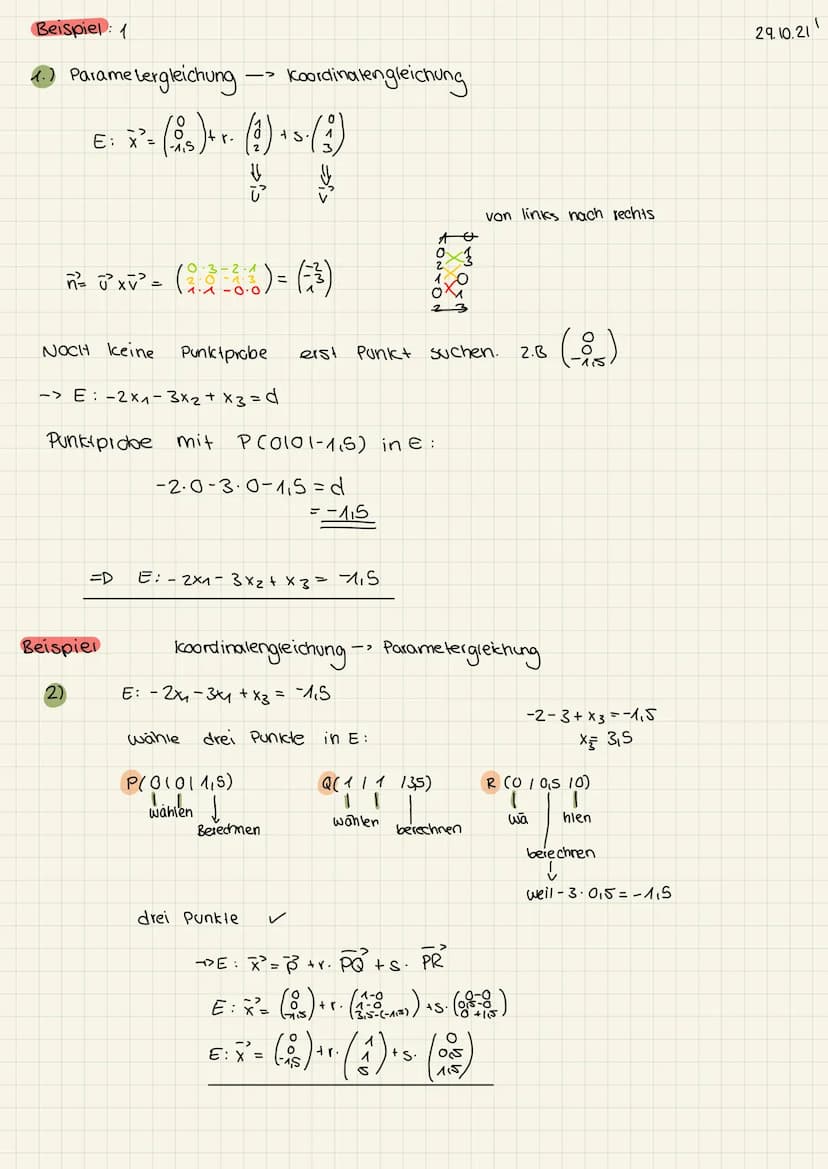 Beispiel: 1
29.10.21
1.) Parametergleichung --> Koordinatengleichung
E: x⃗ = (0 0 -1,5) + r· (1 0 2) + s·(0 1 3)
⇓ ⇓
u⃗ v⃗
von links nach rechts
1 0
0 1
2 3
1 0
0 1
2 3
n⃗ = u⃗ x v⃗ = (0·3-2·1 2·0-1·3 1·1-0·0) = (-2 -3 1)
NOCH keine Punktprobe erst Punkt suchen. z.B (0 0 -1,5)
-> E: -2x₁ - 3x₂ + x₃ = d
Punktprobe mit P(0|0|-1,5) in E:
-2·0-3·0-1,5 = d
= -1,5
=D E: -2x₁ - 3x₂ + x₃ = -1,5
Beispiel Koordinatengleichung --> Parametergleichung
2) E: -2x₁ - 3x₁ + x₃ = -1,5
-2-3+x₃ = -1,5
x₃ = 3,5
wähle drei Punkte in E:
P(0|0|1,5) Q(1|1|35) R(0|0,5|0)
wählen Berechnen wählen berechnen wä hlen
berechnen
weil -3·0,5 = -1,5
drei Punkte ✓
->E: x⃗ = p⃗ + r· PQ⃗ + s· PR⃗
E: x⃗ = (0 0 -1,5) + r·(1-0 1-0 3,5-(-1,5)) + s·(0-0 0,5-0 0+1,5)
E: x⃗ = (0 0 -1,5) + r·(1 1 5) + s·(0 0,5 1,5)